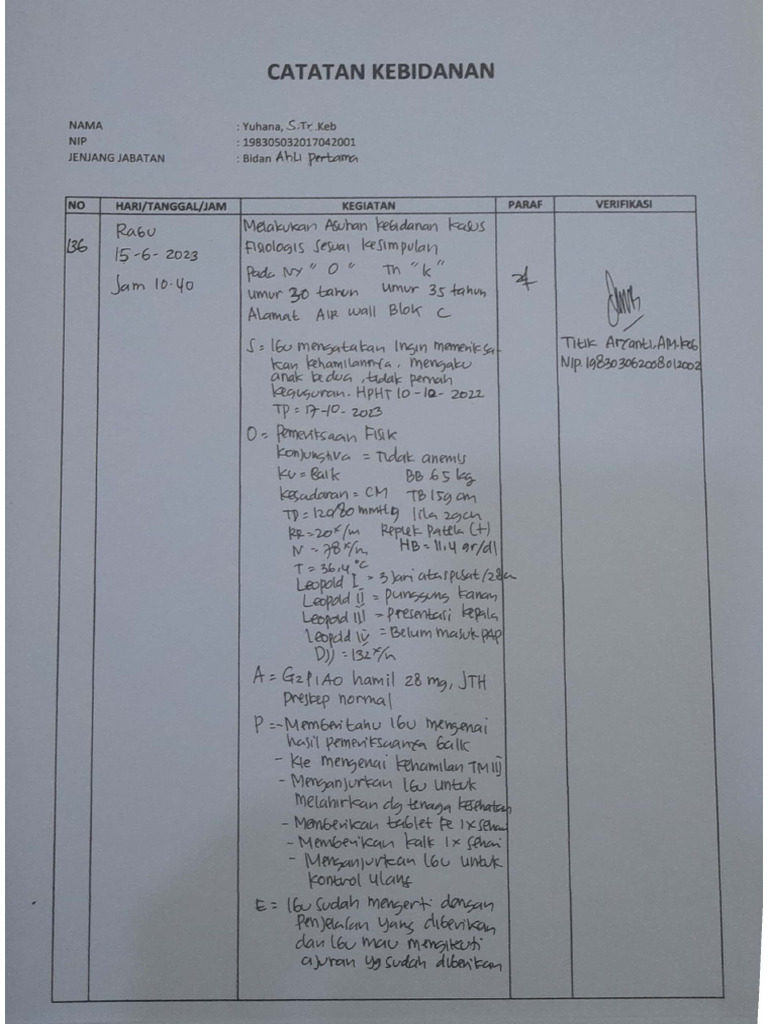 CATATAN KEBIDANAN
NAMA : Yuhana, S.Tr.Keb
NIP : 198305032017042001
JENJANG JABATAN : Bidan Ahli Pertama
NO HARI/TANGGAL/JAM KEGIATAN PARAF VERIFIKASI
136
Rabu
15-6-2023
Jam 10.40
Melakukan Asuhan kebidanan kasus
Fisiologis sesuai kesimpulan
Pada Ny "O" Tn "K"
Umur 30 tahun Umur 35 tahun
Alamat Air Wall Blok C
S = Ibu mengatakan Ingin memeriksa-
kan kehamilannya, mengaku
anak kedua, tidak pernah
keguguran. HPHT 10-12-2022
TP = 17-10-2023
O = Pemeriksaan Fisik
Konjungtiva = Tidak anemis
KU = Baik BB 65 kg
Kesadaran = CM TB 159 cm
TD = 120/80 mmHg lila 29cm
RR = 20x/m Replek Patela (+)
N = 78x/m HB = 11,4 gr/dl
T = 36,4°C
Leopold I = 3 Jari atas pusat/28cm
Leopold II = punggung kanan
Leopold III = presentasi kepala
Leopold IV = Belum masuk PAP
DJJ = 132x/m
A = G2P1A0 hamil 28 mg, JTH
Preskep normal
P = - Memberitahu Ibu mengenai
hasil pemeriksaannya baik
- KIE mengenai kehamilan TM III
- Menganjurkan Ibu untuk
melahirkan dg tenaga kesehatan
- Memberikan tablet Fe 1x sehari
- Memberikan kalk 1x sehari
- Menganjurkan Ibu untuk
kontrol ulang
E = Ibu sudah mengerti dengan
Penjelasan yang diberikan
dan Ibu mau mengikuti
ajuran yg sudah diberikan
Titik Aryanti, AM.Keb
Nip. 198303062008012002